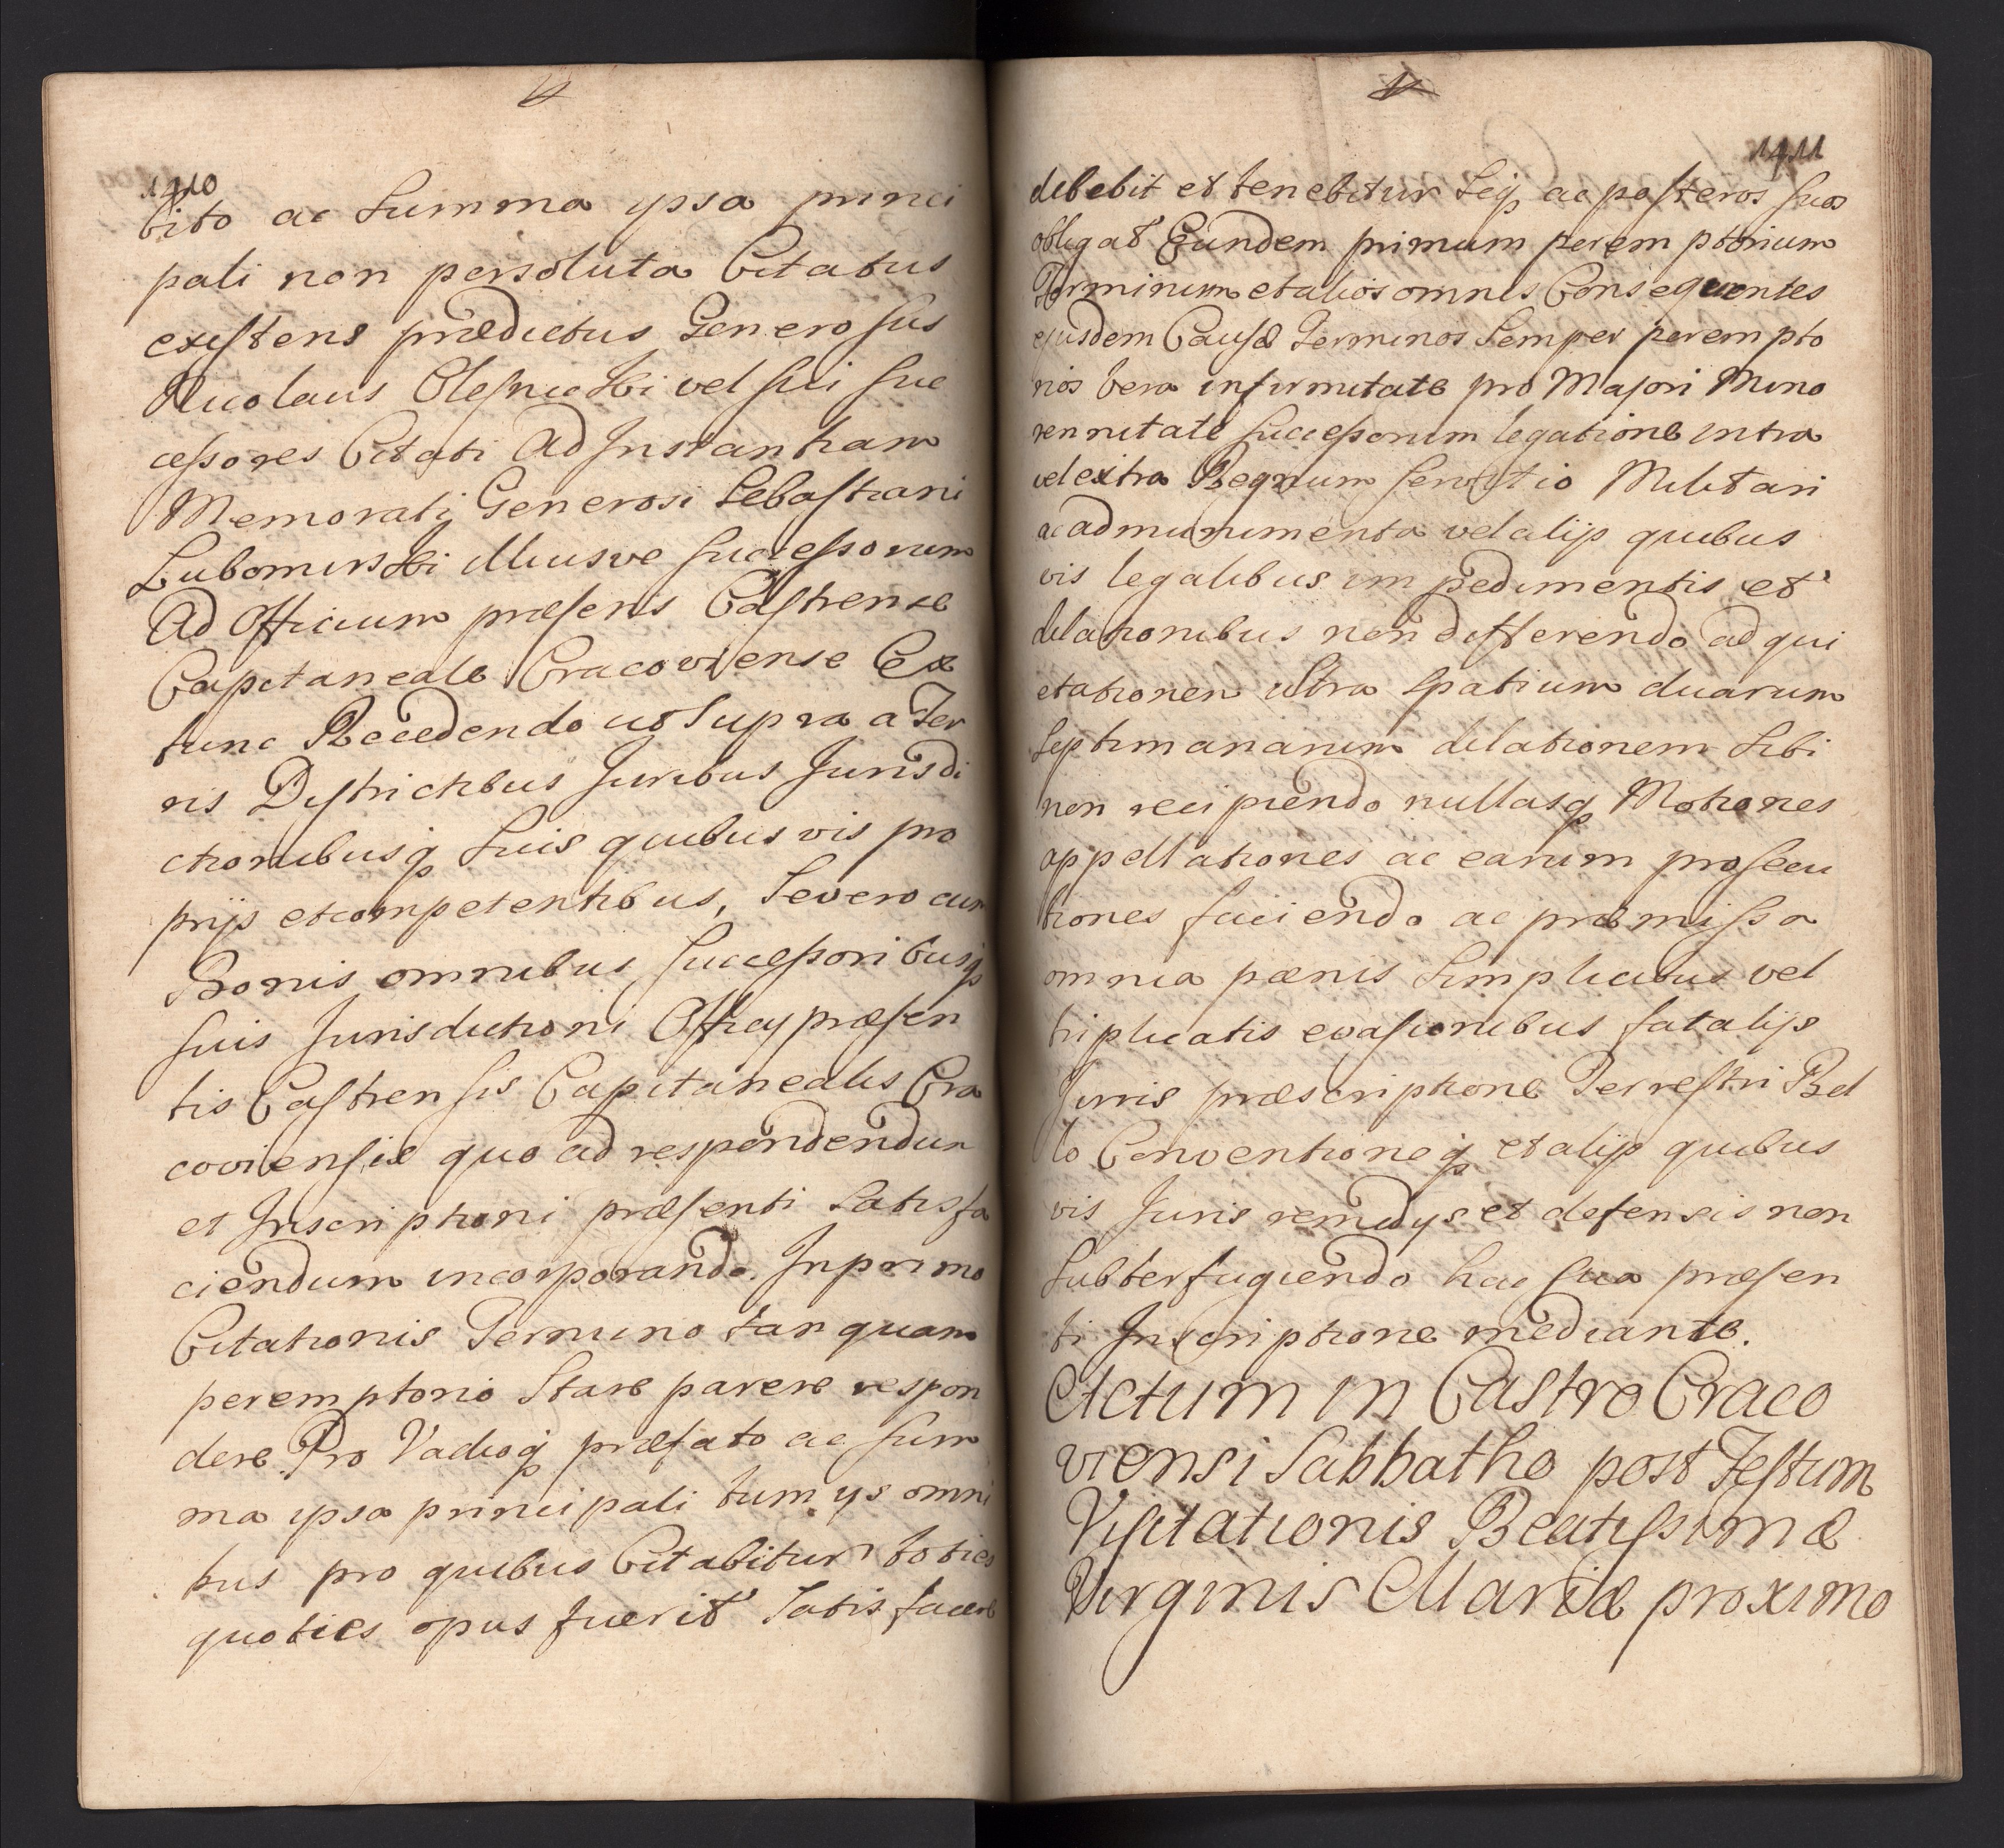 1410
bito ac Summa ypsa princi
pali non persoluta Citatus
existens prædictus Generosus
Nicolaus Olesnicski vel sui suc
cessores Citati Ad Instantiam
Memoratj Generosi Sebastiani
Lubomirski illiusve Successorum
Ad Officium præsens Castrense
Capitaneale Cracoviense Ex
tunc Recedendo ut Supra a Ter
ris Districtibus Juribus Jurisdi
ctionibusq Suis quibus vis pro
prijs et competentibus, Severo cum
Bonis omnibus Successoribusq
suis Jurisdictioni Officy præsen
tis Castrensis Capitanealis Cra
coviensis quo ad respondendum
et Inscriptioni præsenti Satisfa
ciendum incorporando. In primo
Citationis Termino tanquam
peremptorio Stare parere respon
dere Pro Vadioq præfato ac Sum
ma ypsa principali tum ys omni
bus pro quibus Citabitur toties
quoties opus fuerit Satisfacere
1411
debebit et tenebitur Seq ac posteros suos
obligat Eundem primum peremptorium
Terminum et alios omnes Consequentes
ejusdem Causæ Terminos Semper perempto
rios vera infirmitate pro Majori Mino
rennitate Successorum legatione intra
vel extra Regnum Servitio Militari
ac ad munimenta vel alijs quibus
vis legalibus impedimentis et
dilationibus non differendo ad qui
etationem ultra Spatium duarum
Septimanarum dilationem Sibi
non recipiendo nullasq Motiones
appellationes ac earum prosecu
tiones faciendo ac præmissa
omnia pænis Simplicibus vel
triplicatis evasionibus fatalijs
Juris præscriptione Terrestri Bel
lo Conventioneq et alijs quibus
vis Juris remedys et defensis non
Subterfugiendo hac sua præsen
ti Inscriptione mediante.
Actum in Castro Craco
viensi Sabbatho post Festum
Visitationis Beatissimæ
Virginis Mariæ proximo